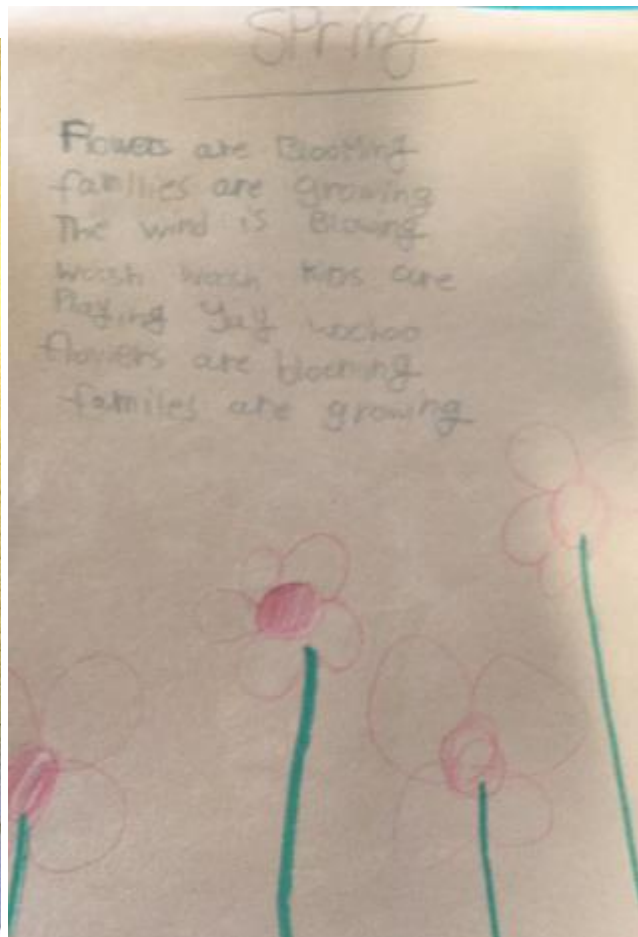 Spring
Flowers are Blooming
families are growing
The wind is Blowing
woosh woosh kids are
Playing Yay woohoo
flowers are blooming
familes are growing